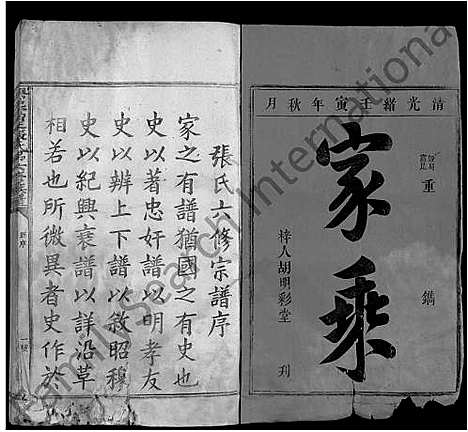 清光緒壬寅年秋月
重鐫
家乘
梓人胡明彩堂刊
張氏六修宗譜序
家之有譜猶國之有史也
史以著忠奸譜以明孝友
史以辨上下譜以敘昭穆
史以紀興衰譜以詳沿革
相若也所微異者史作於
新序
一
Family Search International